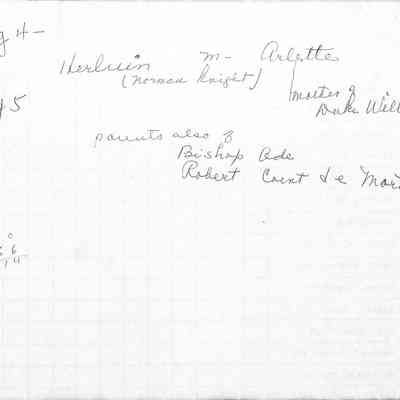 g 4 -
Herluin m - Arlette
(Norman Knight)
mother of
Duke Will
5
parents also of
Bishop Ode
Robert Count de Mort
0
6
14